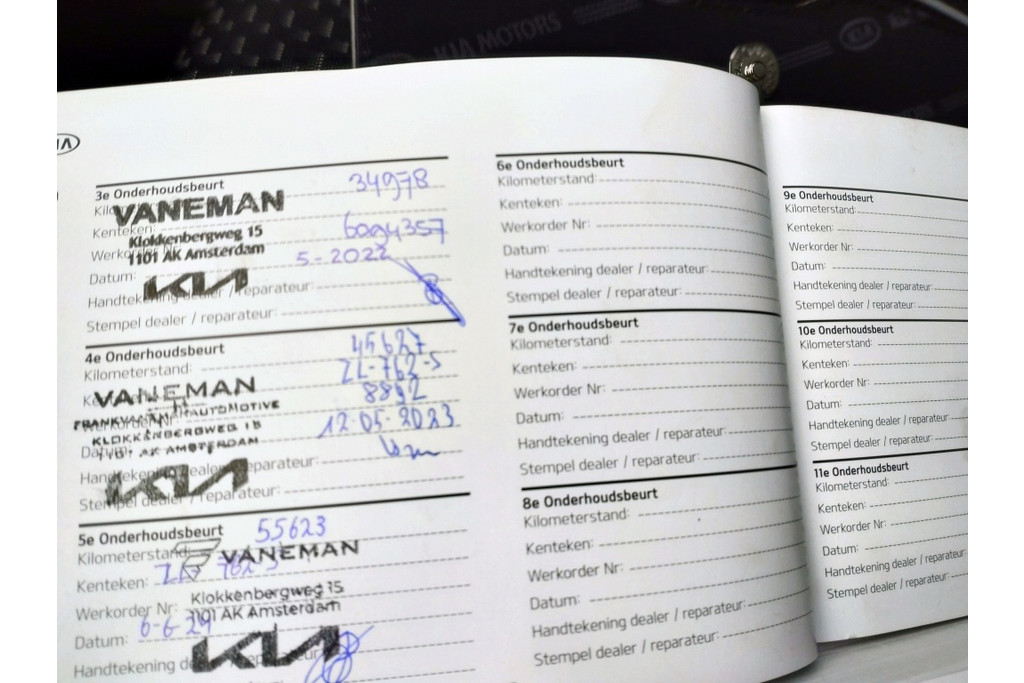 KIA MOTORS
KIA
3e Onderhoudsbeurt
34978
VANEMAN
Kenteken:
Klokkenbergweg 15
1101 AK Amsterdam
Datum: 5-2022
KIA
Handtekening dealer / reparateur:
Stempel dealer / reparateur:
4e Onderhoudsbeurt
Kilometerstand: 45627
VANEMAN
ZL-762-S
8892
KLOKKENBERGWEG 15
1101 AK AMSTERDAM
Datum: 12-05-2023
Handtekening dealer / reparateur:
KIA
Stempel dealer / reparateur:
5e Onderhoudsbeurt
Kilometerstand: 55623
VANEMAN
Kenteken: ZL 762-S
Klokkenbergweg 15
Werkorder Nr:
1101 AK Amsterdam
Datum: 6-6-24
Handtekening dealer / reparateur:
KIA
6e Onderhoudsbeurt
Kilometerstand:
Kenteken:
Werkorder Nr:
Datum:
Handtekening dealer / reparateur:
Stempel dealer / reparateur:
7e Onderhoudsbeurt
Kilometerstand:
Kenteken:
Werkorder Nr:
Datum:
Handtekening dealer / reparateur:
Stempel dealer / reparateur:
8e Onderhoudsbeurt
Kilometerstand:
Kenteken:
Werkorder Nr:
Datum:
Handtekening dealer / reparateur:
Stempel dealer / reparateur:
9e Onderhoudsbeurt
Kilometerstand:
Kenteken:
Werkorder Nr:
Datum:
Handtekening dealer / reparateur:
Stempel dealer / reparateur:
10e Onderhoudsbeurt
Kilometerstand:
Kenteken:
Werkorder Nr:
Datum:
Handtekening dealer / reparateur:
Stempel dealer / reparateur:
11e Onderhoudsbeurt
Kilometerstand:
Kenteken:
Werkorder Nr:
Datum:
Handtekening dealer / reparateur:
Stempel dealer / reparateur: